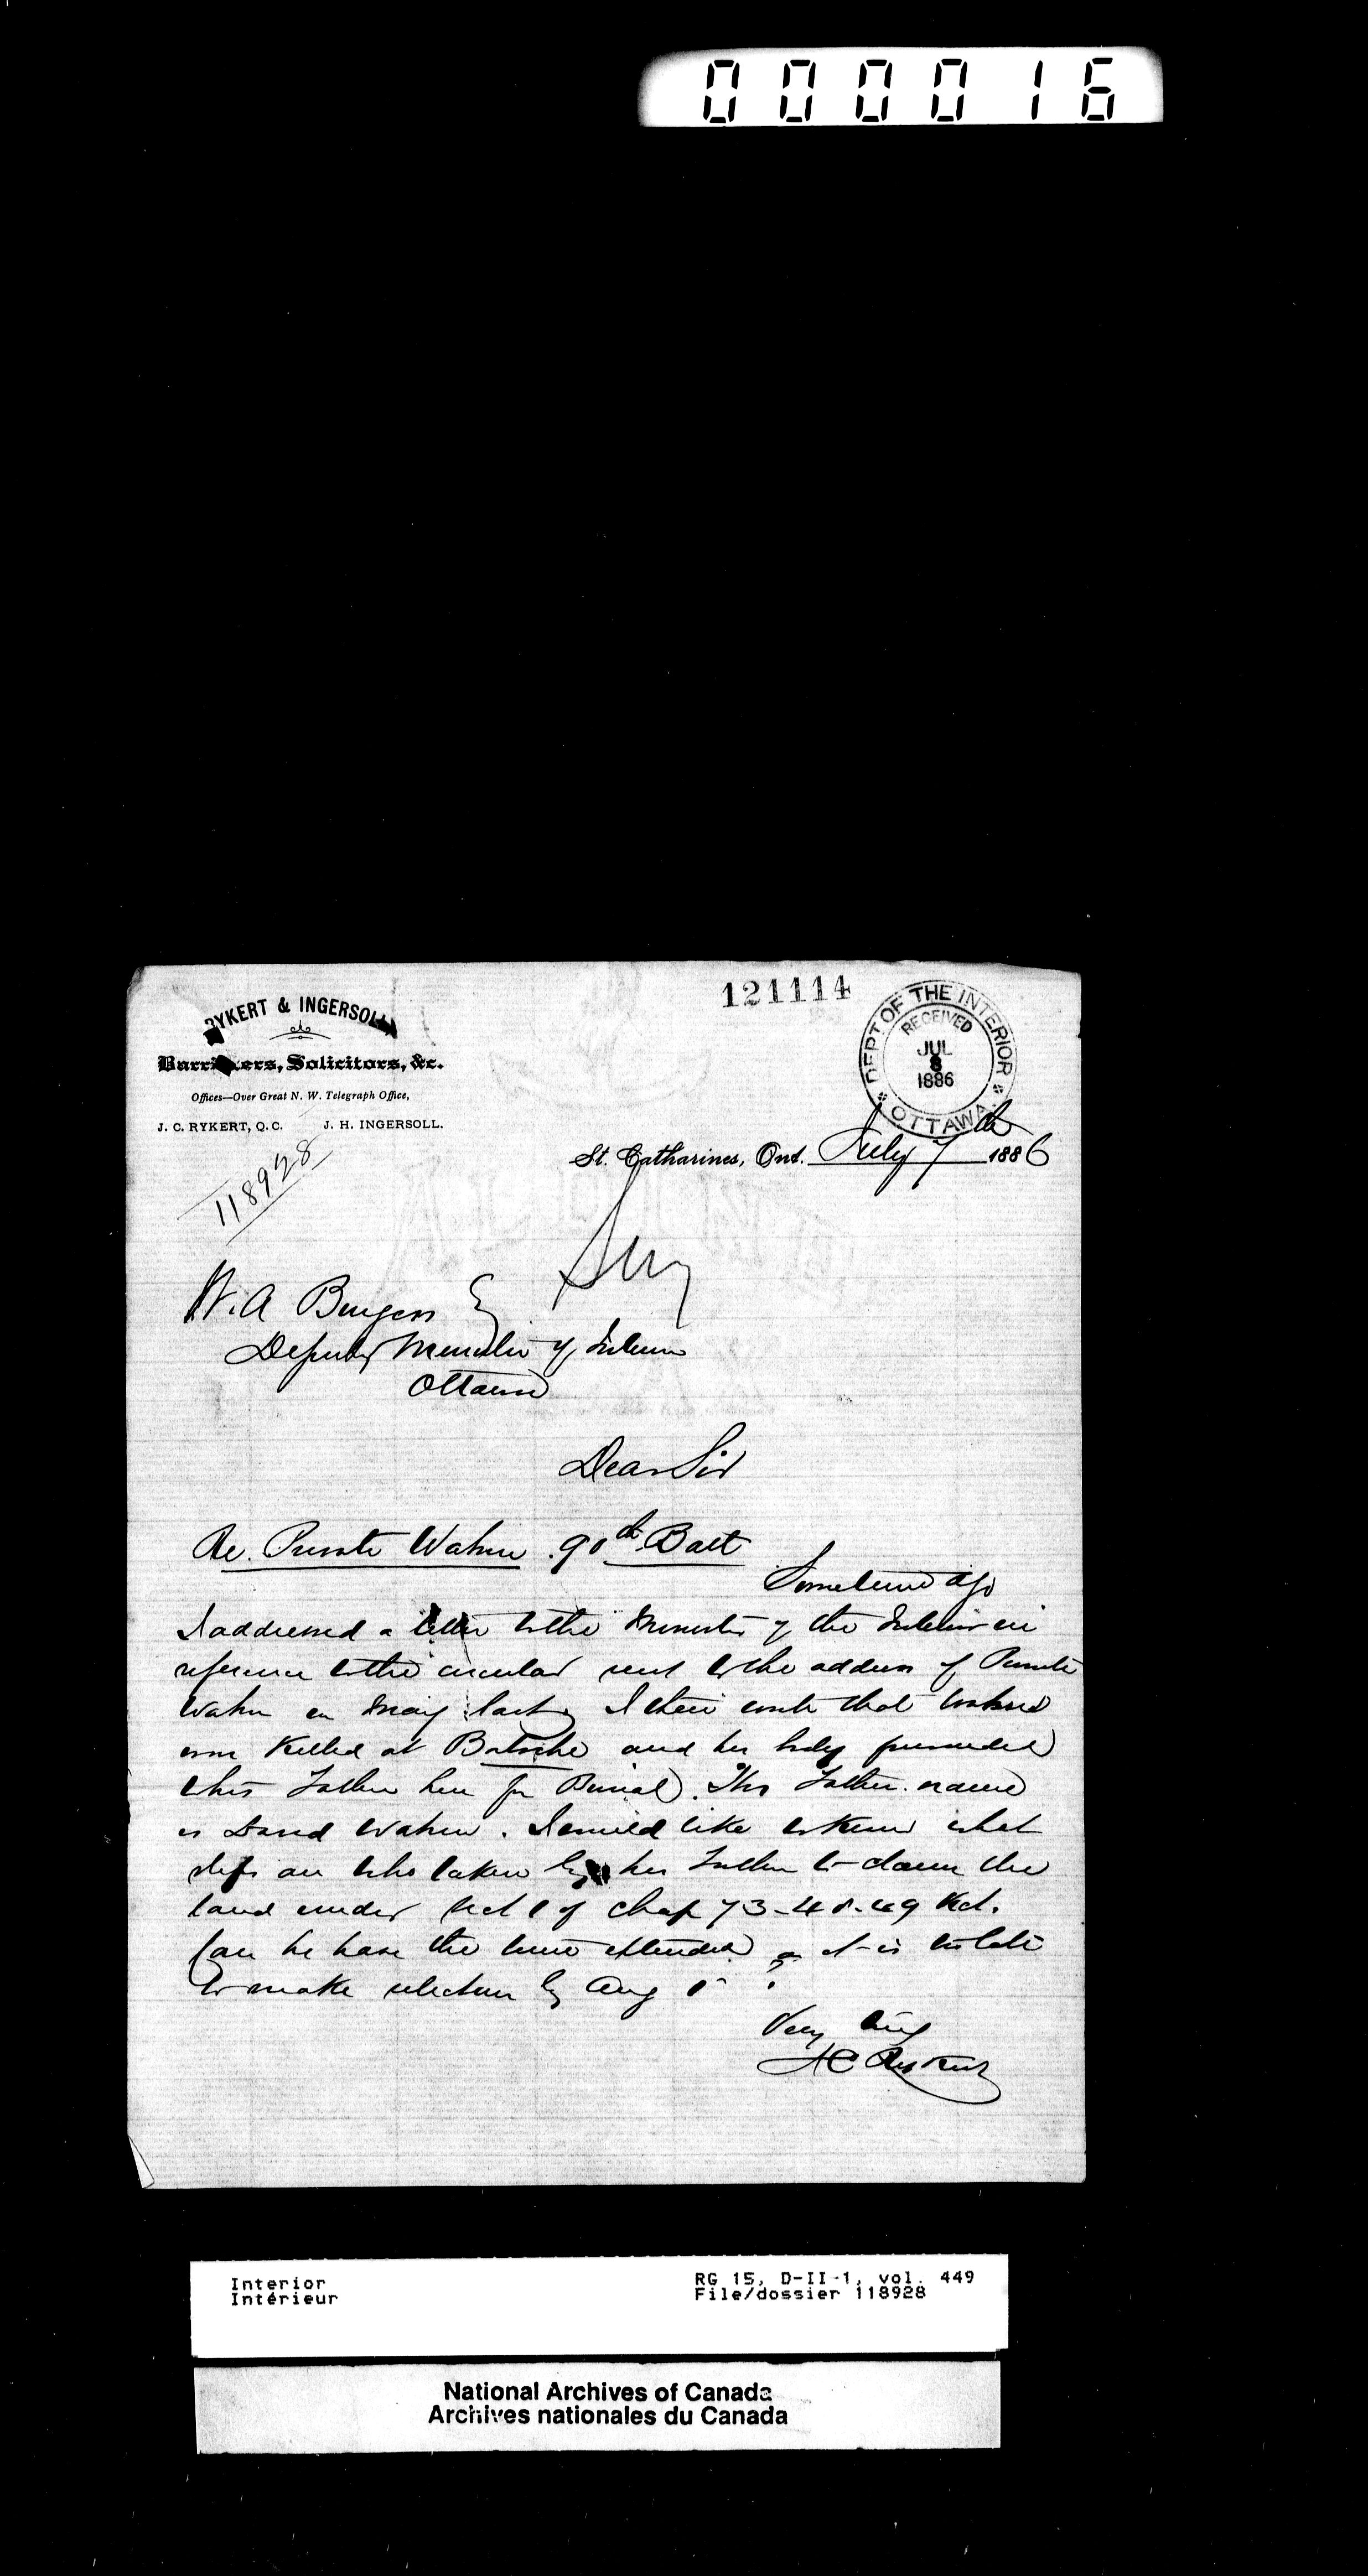 000016
121114
RYKERT & INGERSOLL
Barristers, Solicitors, &c.
Offices—Over Great N. W. Telegraph Office,
J. C. RYKERT, Q. C. J. H. INGERSOLL.
DEPT OF THE INTERIOR
RECEIVED
JUL
8
1886
OTTAWA
St. Catharines, Ont. July 7th 1886
118928
W. A Burgess Esq
Deputy Minister of Interior
Ottawa
Dear Sir
Re. Private Watson 90th Batt
Sometime ago
I addressed a letter to the Minister of the Interior in
reference to the circular sent to the address of Private
Watson in May last, I then wrote that Watson
was Killed at Batoche and his body forwarded
to his Father here for Burial. His Father name
is David Watson. I would like to know what
steps are to be taken by his Father to claim the
land under Sect 1 of Chap 73-48-49 Vict.
Can he have the time extended as it is too late
to make selection by Aug 1 ?
Very truly
J C Rykert
Interior
Intérieur
RG 15, D-II-1, vol. 449
File/dossier 118928
National Archives of Canada
Archives nationales du Canada